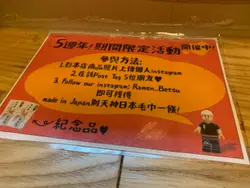 5週年!期間限定活動
開催中!!
參與方法:
1.影本店商品照片上傳個人instagram
2.在該Post Tag 5位朋友♥
3. Follow our instagram: Ramen_Betsu
即可獲得
made in Japan別天神日本毛巾一條!
紀念品♥